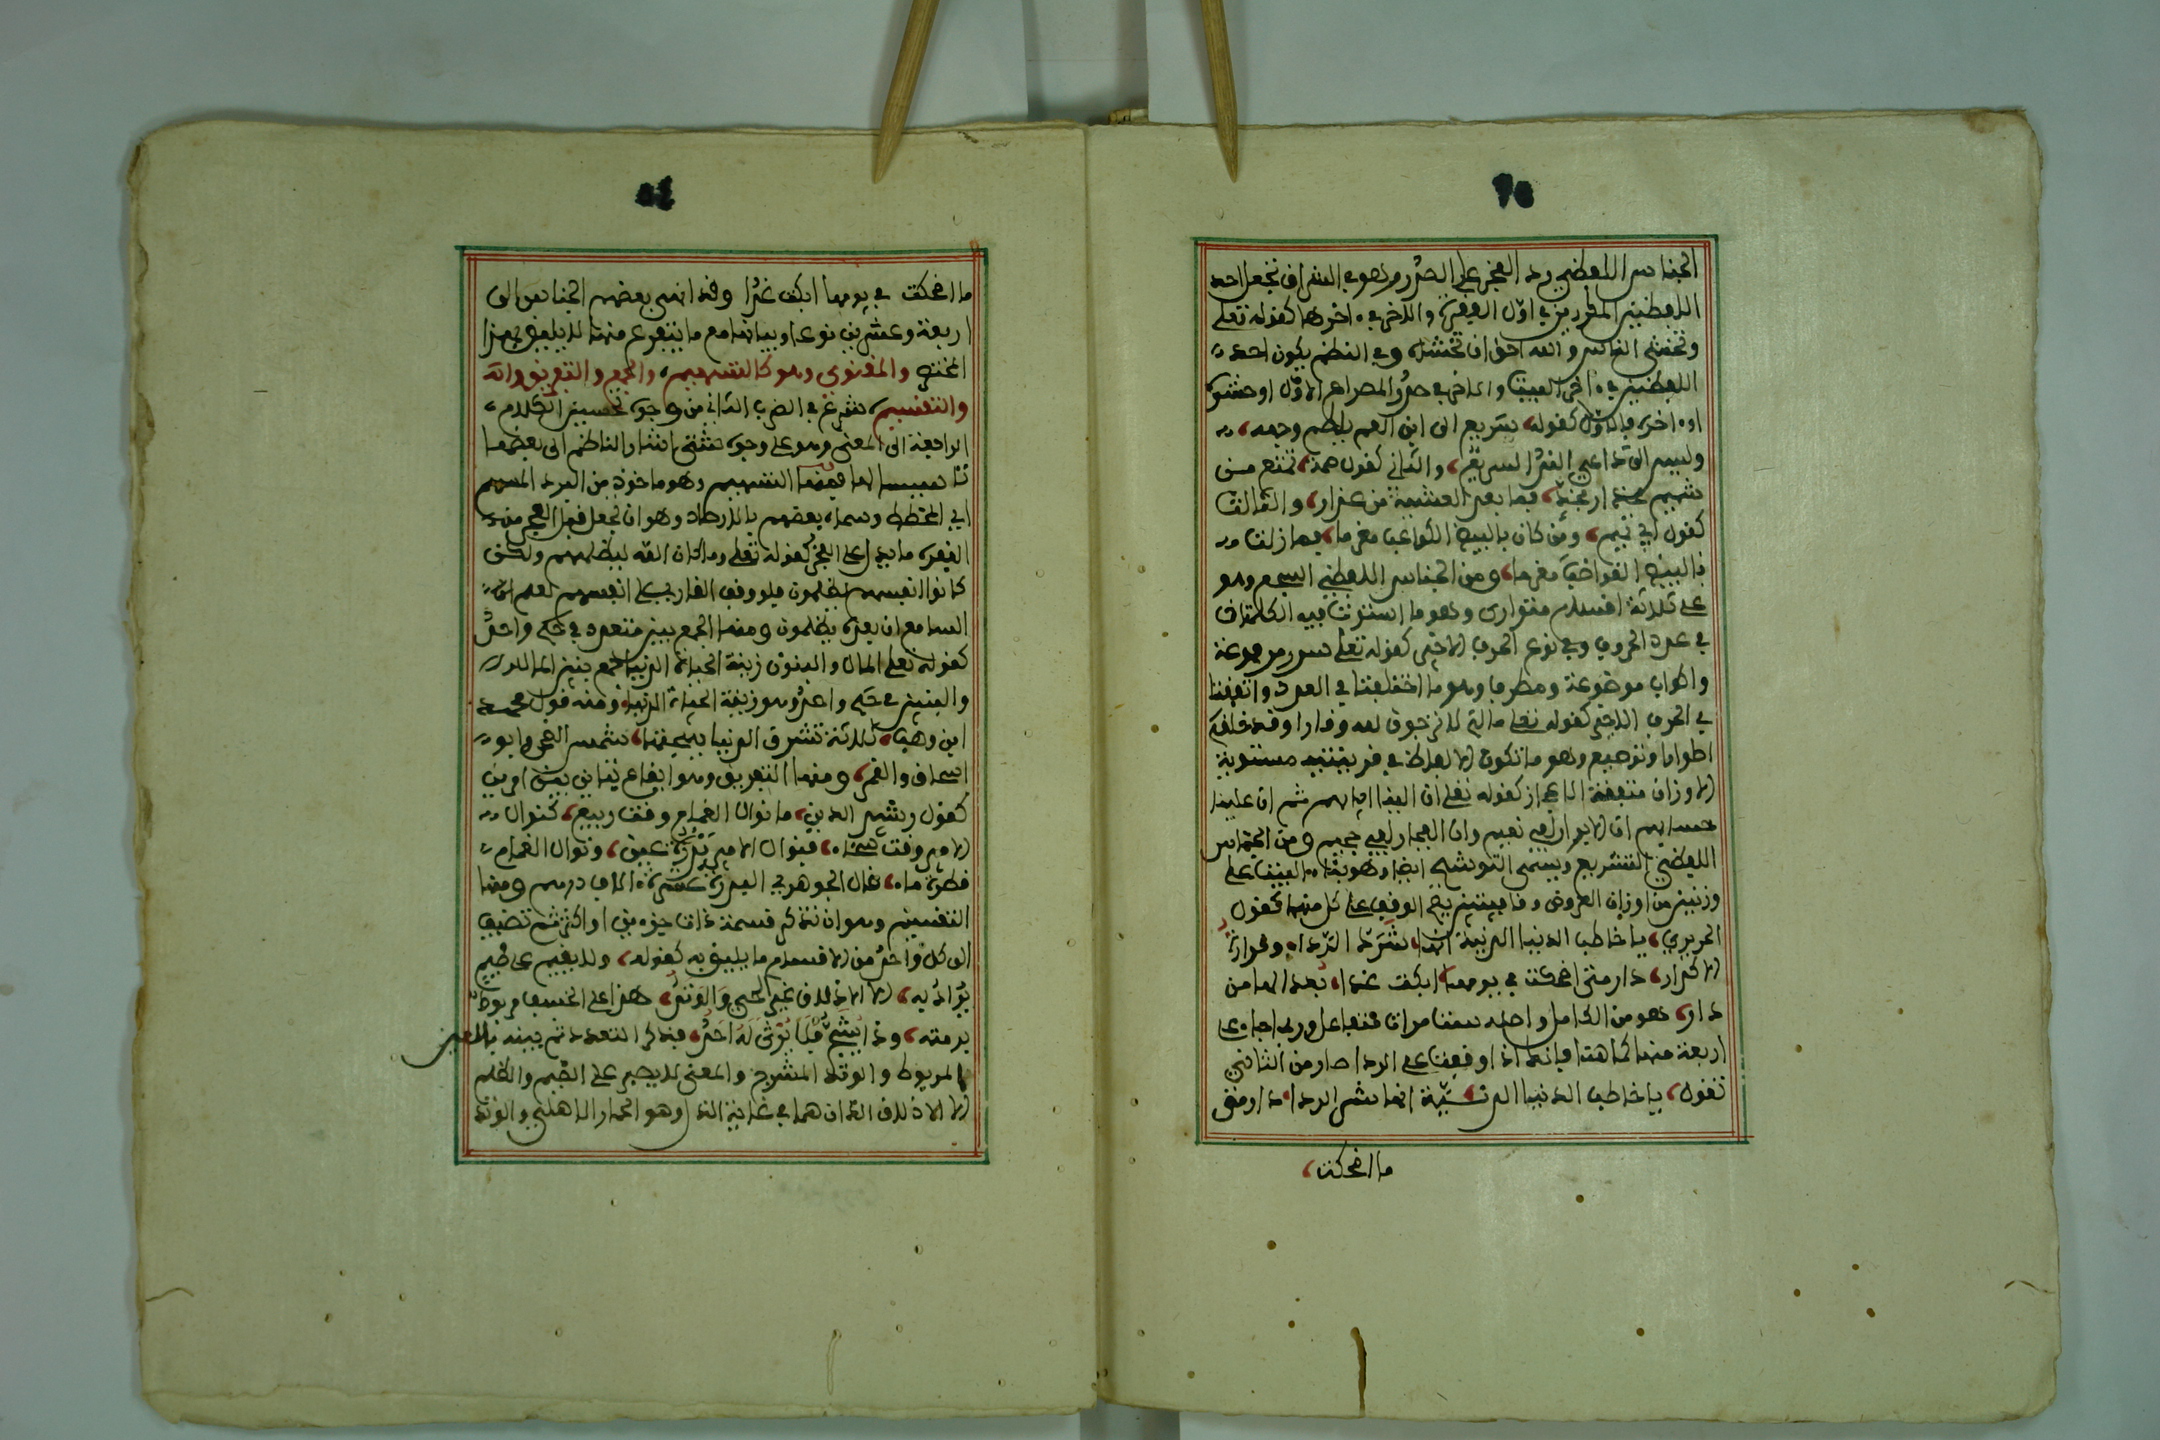 الجناس اللفظي رد العجز على الصدر وهو في النثر ان تجعل احد
اللفظين المكررين في اول الفقرة والاخر في ءاخرها كقوله تعلى
وتخشى الناس والله احق ان تخشاه وفي النظم يكون احد
اللفظين في ءاخر البيت والاخر في صدر المصراع الاول او حشوه
او ءاخره فالاول كقوله سريع الى ابن العم يلطم وجهه
وليس الى داعي الندا بسريع والثاني كقول تمتع من
شميم عرار نجد فما بعد العشية من عرار والثالث
كقول ابي تميم ومن كان بالبيض الكواعب مغرما فما زلت
بالبيض القواضب مغرما ومن الجناس اللفظي السجع وهو
على ثلاثة اقسام متوازي وهو ما استوت فيه الكلمتان
في عدد الحروف وفي نوع الحرف الاخير كقوله تعلى سرر مرفوعة
واكواب موضوعة ومطرف وهو ما اختلفتا في العدد واتفقتا
في الحرف الاخير كقوله تعلى مالكم لا ترجون لله وقارا وقد خلقكم
اطوارا وترصيع وهو ما تكون الالفاظ في قرينتيه مستوية
الاوزان متفقة الاعجاز كقوله تعلى ان الينا ايابهم ثم ان علينا
حسابهم ان الابرار لفي نعيم وان الفجار لفي جحيم ومن الجناس
اللفظي التشريع ويسمى التوشيح ايضا وهو بناء البيت على
وزنين من اوزان العروض وقافيتين يصح الوقف على كل منهما كقول
الحريري يا خاطب الدنيا الدنية انها شرك الردا وقرارة
الاكدار دار متى اضحكت في يومها ابكت غدا بعدا لها من
دار وهو من الكامل واصله ست مرات متفاعل وربى اجاء على
اربعة منها كما هنا فانه اذا وقفت على الردا صار من الثاني
تقول يا خاطب الدنيا الدنية انها شرك الردا دار متى
ما اضحكت
ما اضحكت في يومها ابكت غدا وقد انهى بعضهم الجناس الى
اربعة وعشرين نوعا وبيانها مع ما يتفرع منها لا يليق بهذا
المختصر والمعنوي وهو كالتسهيم والجمع والتفريق
والتقسيم شرع في الضرب الثاني من وجوه تحسين الكلام
الراجعة الى المعنى وهو على وجوه شتى اشار الناظم الى بعضها
فمنها التسهيم وهو ماخوذ من البرد المسهم
اي المخطط وسماه بعضهم بالارصاد وهو ان تجعل قبل العجز من
الفقرة ما يدل على العجز كقوله تعلى وما كان الله ليظلمهم ولكن
كانوا انفسهم يظلمون فلو وقف القارئ على انفسهم لعلم
السامع ان بعده يظلمون ومنها الجمع بين متعدد في حكم واحد
كقوله تعلى المال والبنون زينة الحياة الدنيا جمع بين المال
والبنين في حكم واحد وهو زينة الحياة الدنيا ومنه قول محمد
ابن وهيب ثلاثة تشرق الدنيا ببهجتها شمس الضحى وابو
اسحاق والقمر ومنها التفريق وهو ايقاع تباين بين امرين
كقول رشيد الدين ما نوال الغمام وقت ربيع كنوال
الامير وقت سخاء فنوال الامير بدرة عين ونوال الغمام
قطرة ماء قال الجوهري البدرة عشرة الاف درهم ومنها
التقسيم وهو ان تذكر قسمة ذات جزءين او اكثر ثم تضيف
الى كل واحد من الاقسام ما يليق به كقوله ولا يقيم على ضيم
يراد به الا الاذلان عير الحي والوتد هذا على الخسف مربوط
برمته وذا يشج فلا يرثى له احد فذكر التعدد ثم بينه بالعير
المربوط والوتد المشجوج والمعنى لا يصبر على الضيم والظلم
الا الاذلان اللذان هما في غاية الذل وهو الحمار الاهلي والوتد